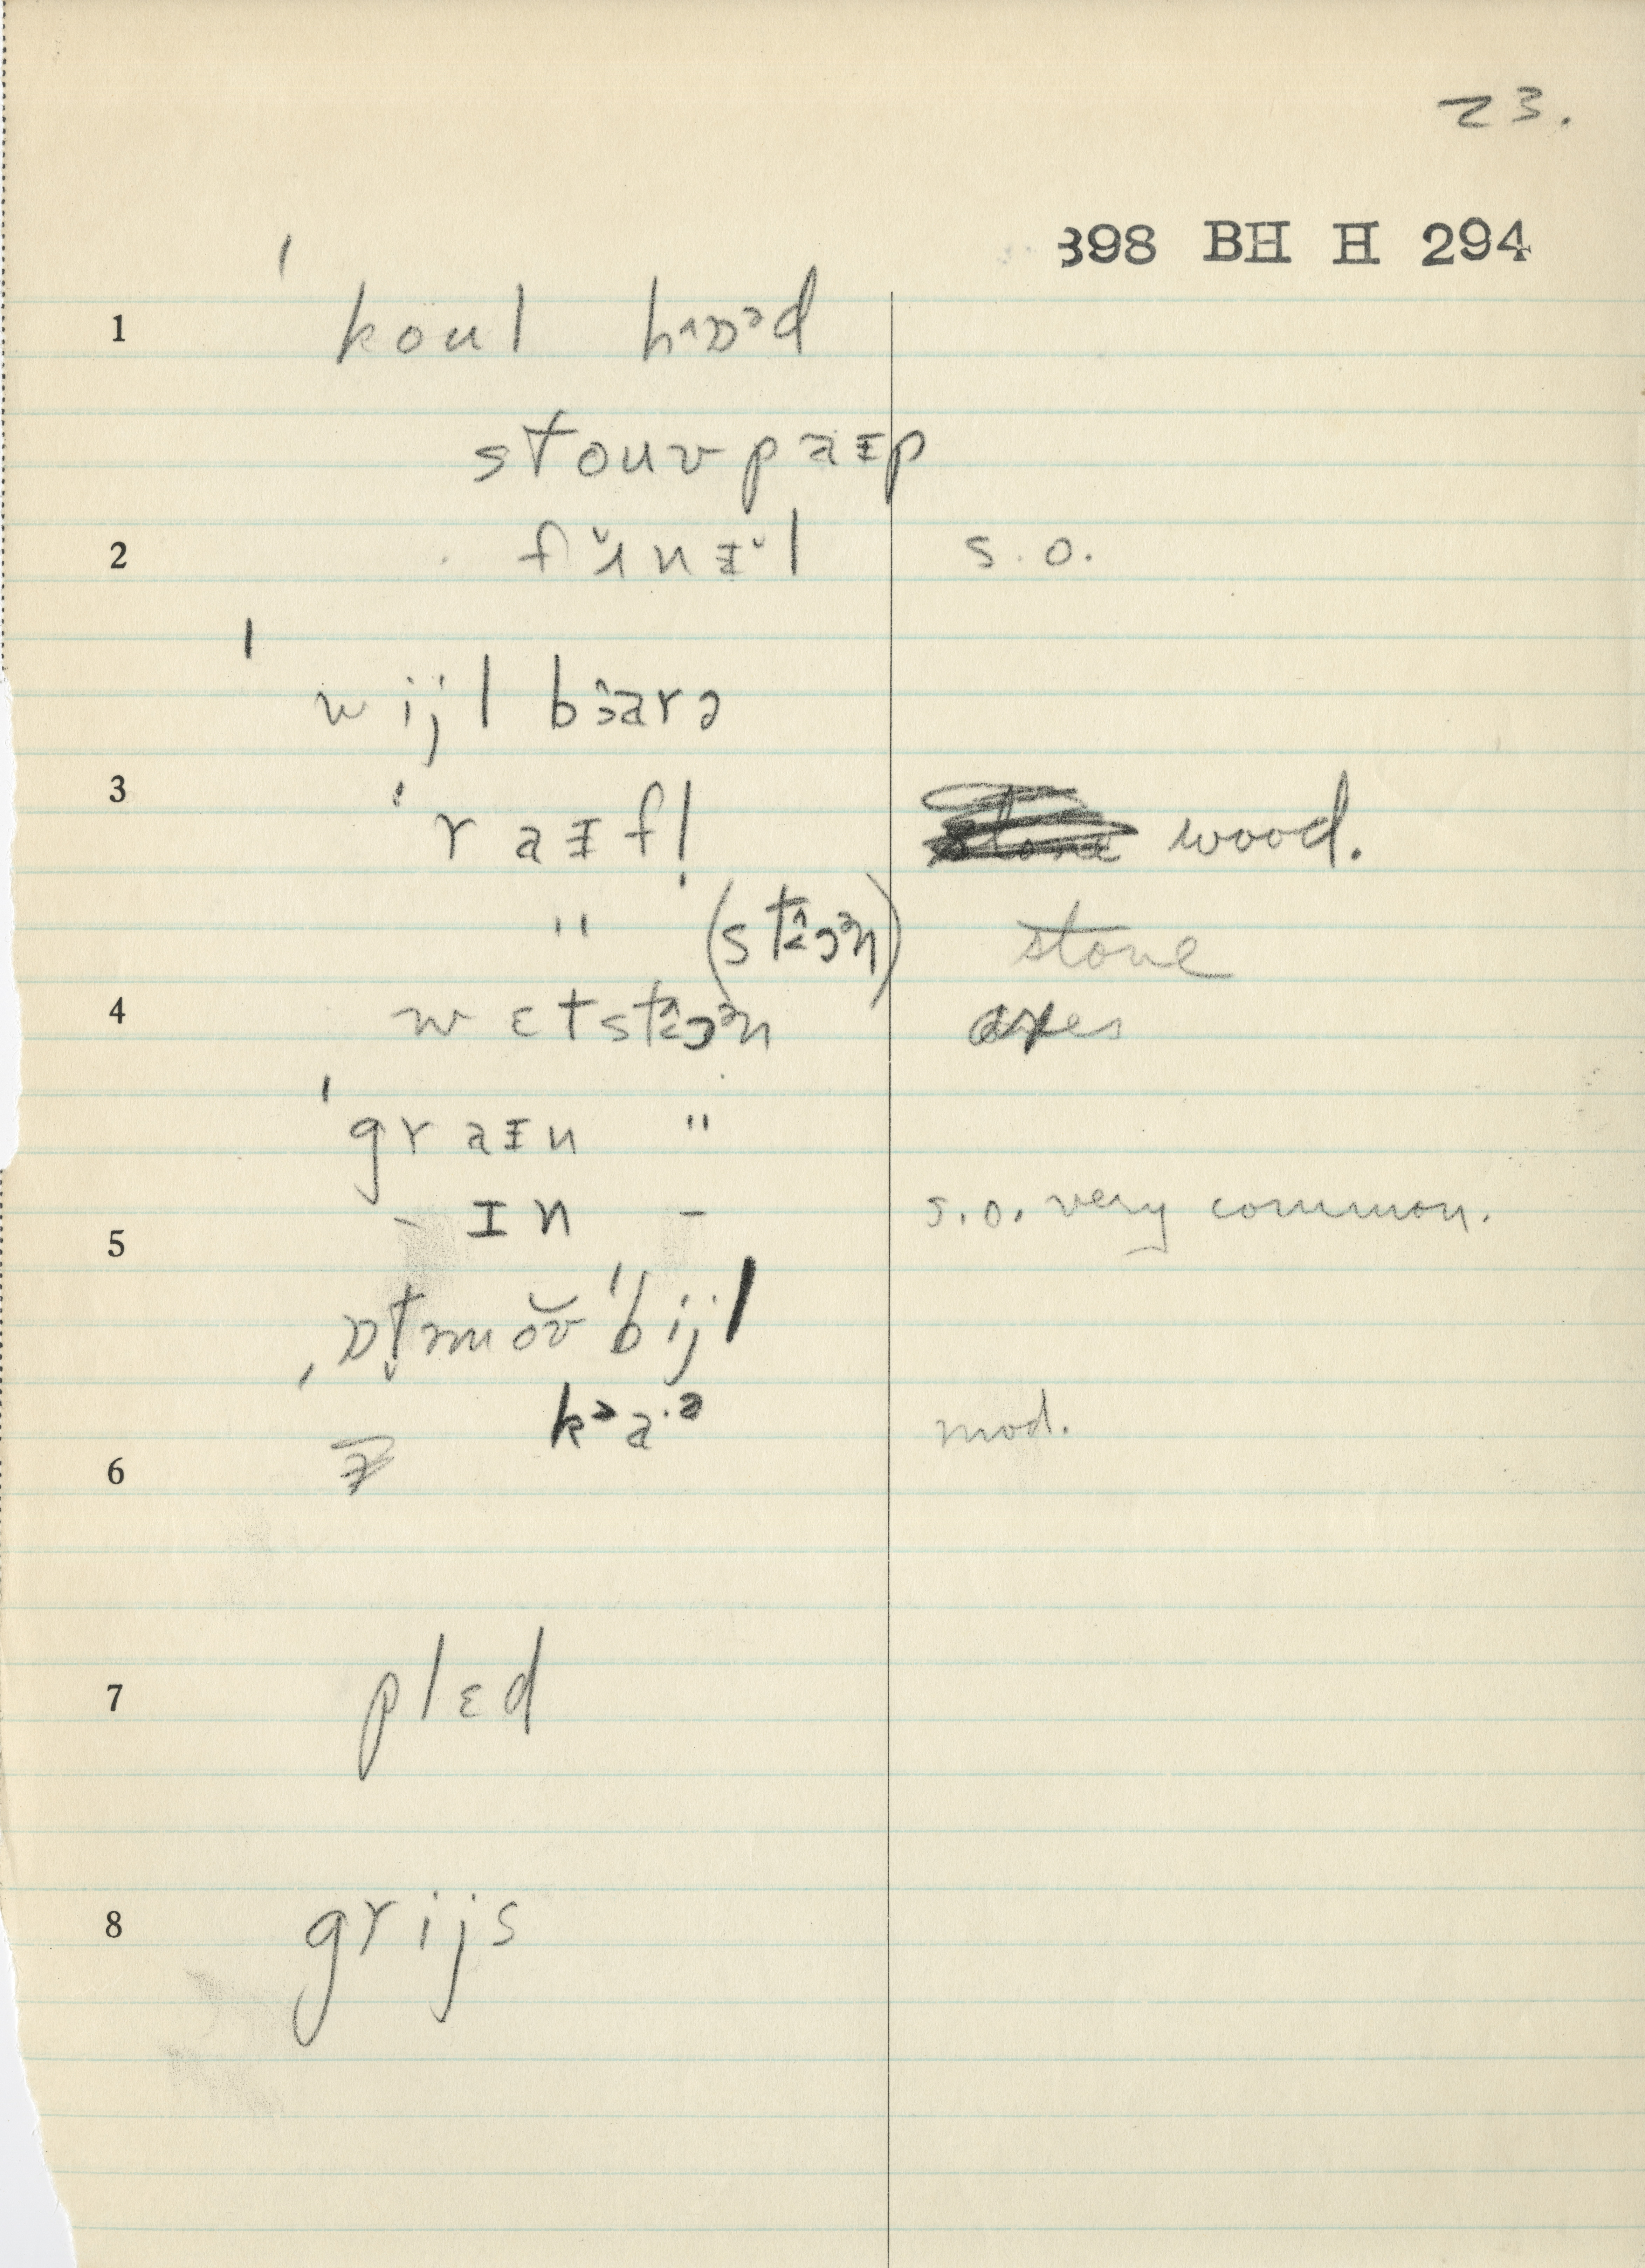 23.
398 BH H 294
1 ˈkoul hɒᵊd
stouʋpaᵻp
2 fʌ̆nᵻ̆l s.o.
ˈwijlbarə
3 ˈraᵻfl̩ wood.
" (stɔᵊn) stone
4 wɛtstɔᵊn axes
ˈgraᵻn "
5 - ɪn - s.o. very common.
ˌɒt̬mŏʋˈbijl
6 kᵊa·ᵊ mod.
7 plɛd
8 grijs